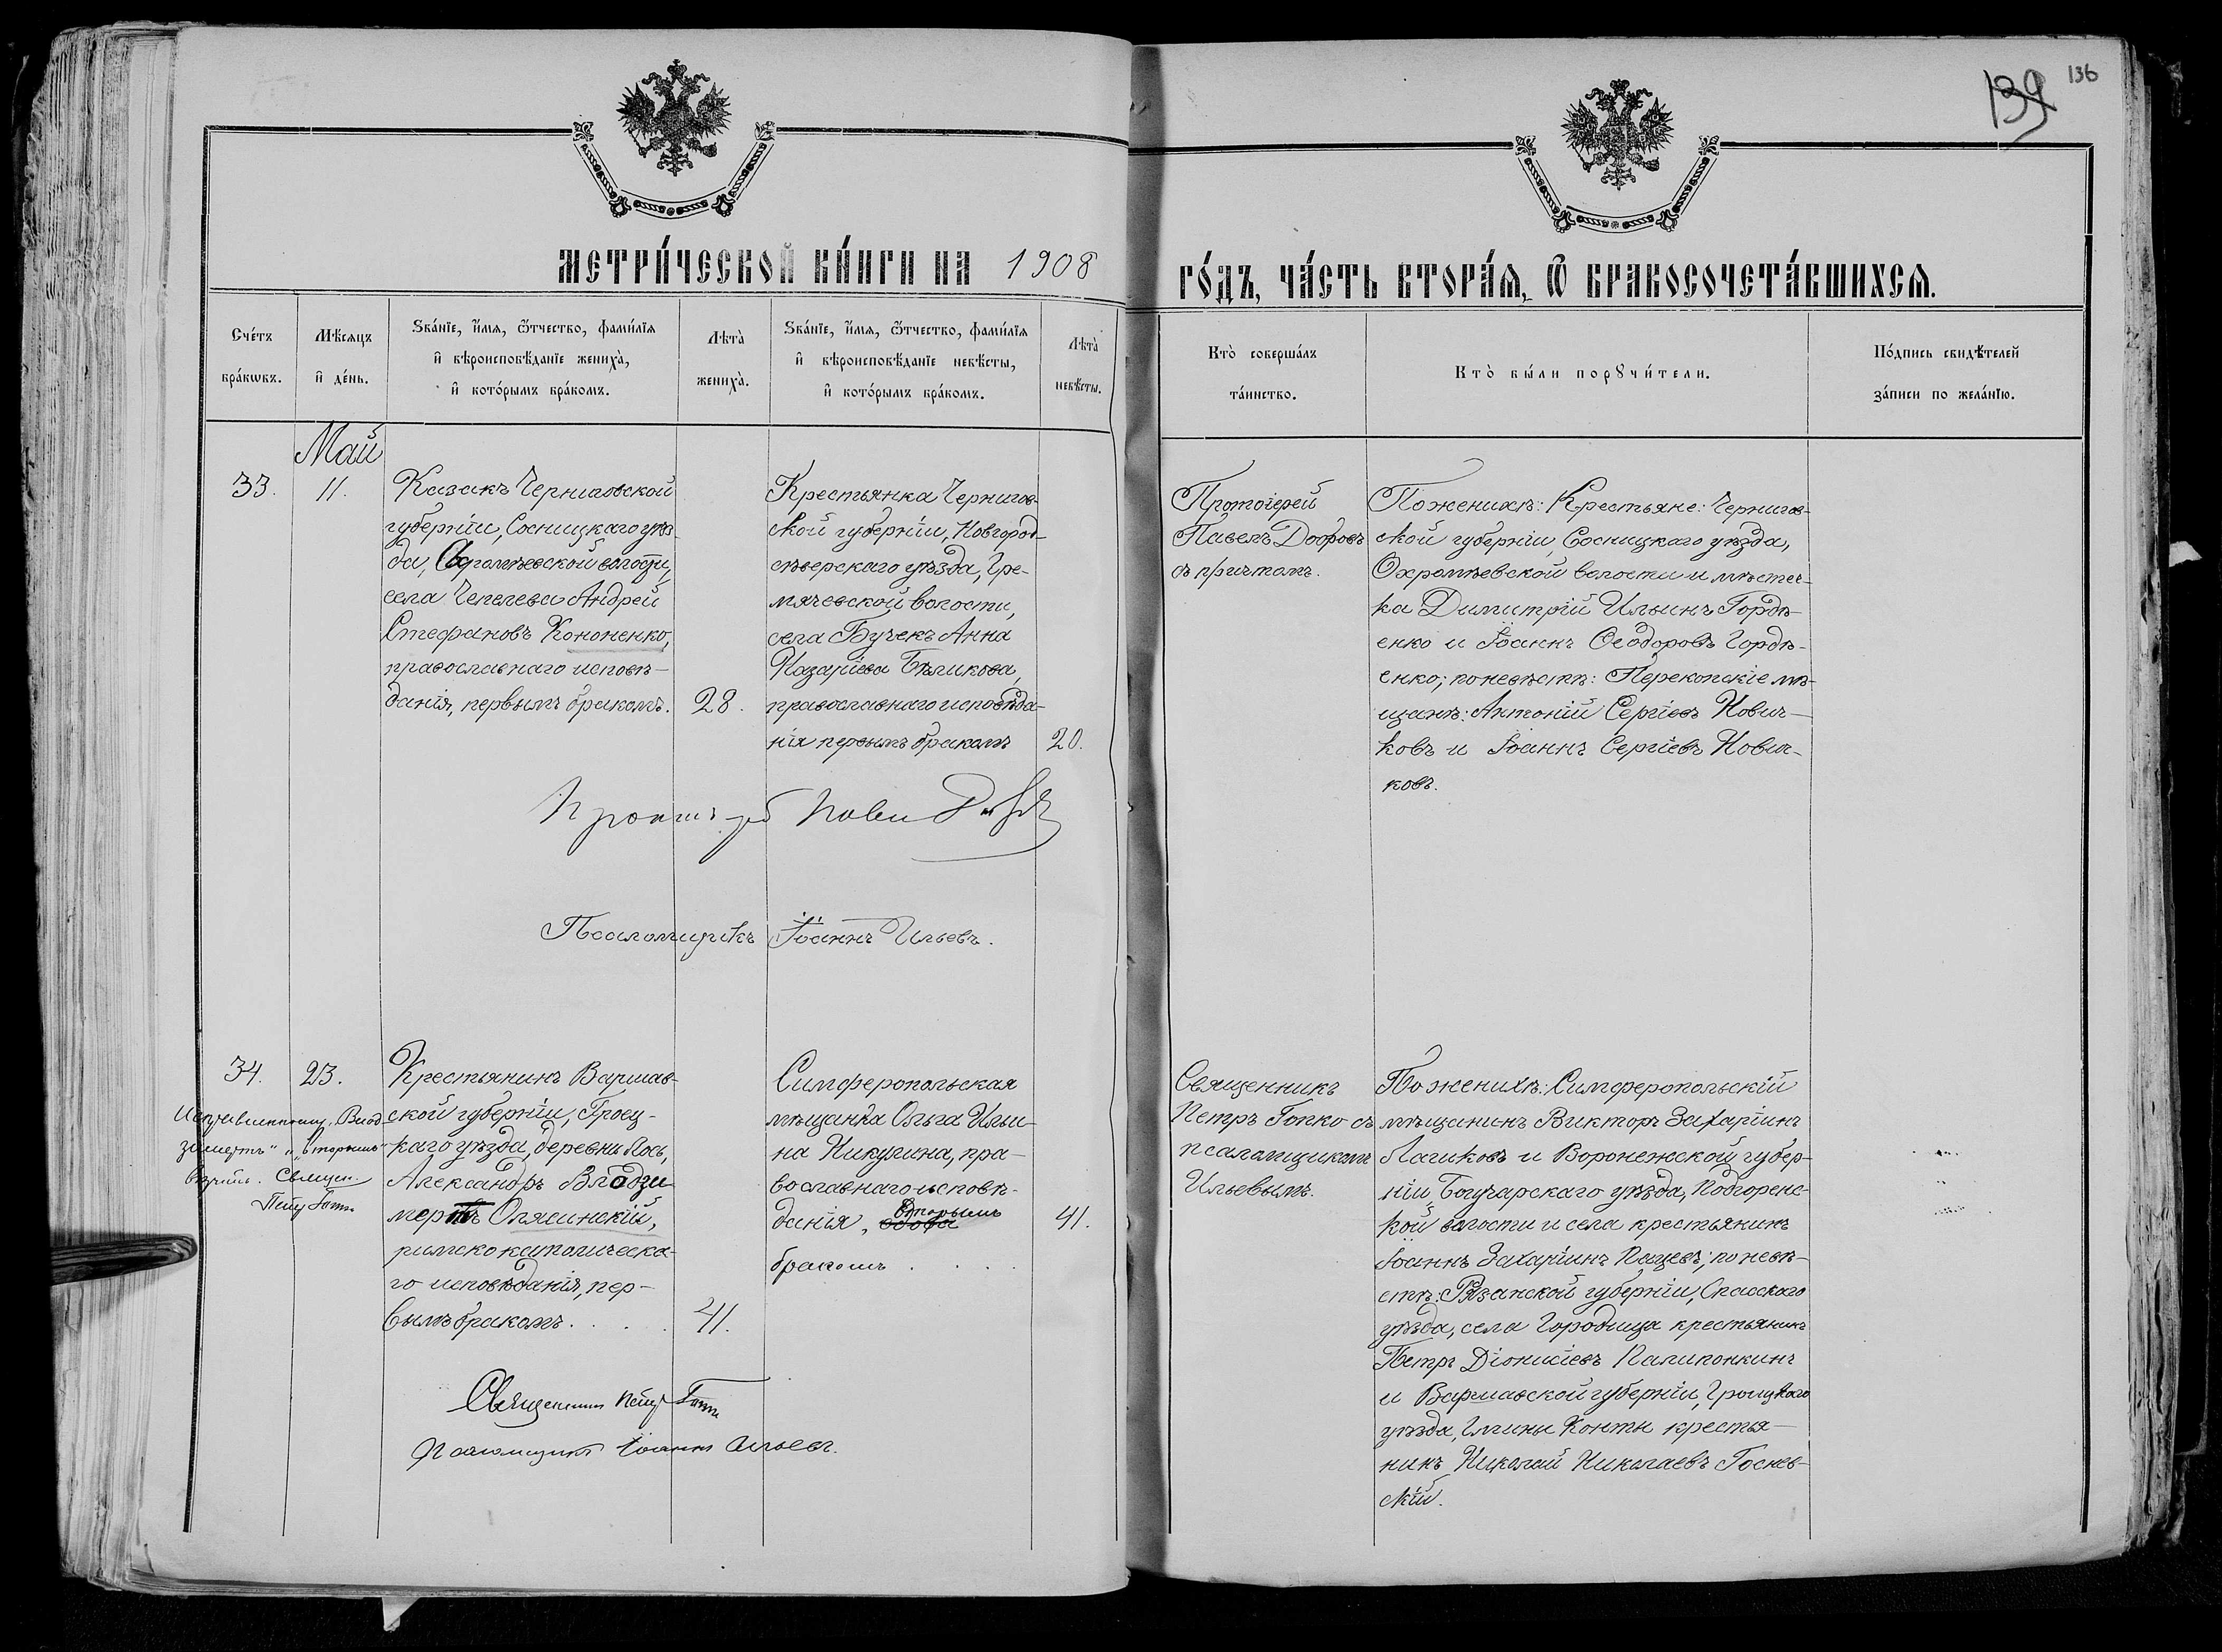 139 136
МЕТРИ́ЧЕСКОЙ КНИ́ГИ НА 1908
ГО́ДЪ, ЧА́СТЬ ВТОРА́Я, Ѿ БРАКОСОЧЕТА́ВШИХСЯ.
Сче́тъ бра́кѡвъ.
Мѣ́сяцъ и҆ де́нь.
Ѕва́нїе, и҆́мя, ѻ҆́тчество, фами́лїя
и҆ вѣроисповѣ́данїе жениха̀,
и҆ кото́рымъ бра́комъ.
Лѣта̀ жениха̀.
Ѕва́нїе, и҆́мя, ѻ҆́тчество, фами́лїя
и҆ вѣроисповѣ́данїе невѣ́сты,
и҆ кото́рымъ бра́комъ.
Лѣта̀ невѣ́сты.
Кто̀ соверша́лъ
та́инство.
Кто̀ бы́ли порꙋчи́тели.
По́дпись свидѣ́телей
за́писи по жела́нїю.
Май
33.
11.
Казакъ Черниговской
губерніи, Сосницкаго уѣз-
да, Охромѣевской волости,
села Чепелева Андрей
Стефановъ Кононенко,
православнаго исповѣ-
данія, первымъ бракомъ.
28.
Крестьянка Чернигов-
ской губерніи, Новгород-
сѣверскаго уѣзда, Гре-
мячевской волости,
села Бучекъ Анна
Назаріева Бѣликова,
православнаго исповѣда-
нія первымъ бракомъ
20.
Протоіерей
Павелъ Добровъ
съ причтомъ.
По женихѣ: Крестьяне: Чернигов-
ской губерніи, Сосницкаго уѣзда,
Охромѣевской волости и мѣстеч-
ка Димитрій Ильинъ Гордѣ-
енко и Іоаннъ Ѳеодоровъ Гордѣ-
енко; по невѣстѣ: Перекопскіе мѣ-
щане: Антоній Сергіевъ Нович-
ковъ и Іоаннъ Сергіевъ Нович-
ковъ.
Протоіерей Павел Добровъ
Псаломщикъ Іоаннъ Ильевъ.
34.
23.
Исправленному „Влод-
зимертъ" и „вторымъ"
вѣрить. Священ.
Петръ Гопко
Крестьянинъ Варшав-
ской губерніи, Гроец-
каго уѣзда, деревни Лось,
Александръ Влодзи
мертъ Олясинскій,
римско католическа-
го исповѣданія, пер-
вымъ бракомъ. . . . .
41.
Симферопольская
мѣщанка Ольга Ильи-
на Никулина, пра-
вославнаго исповѣ-
данія, вдова вторымъ
бракомъ . . . .
41.
Священникъ
Петръ Гопко съ
псаломщикомъ
Ильевымъ.
По женихѣ: Симферопольскій
мѣщанинъ Викторъ Захаріинъ
Лагиковъ и Воронежской губер-
ніи, Богучарскаго уѣзда, Подгоренс-
кой волости и села крестьянинъ
Іоаннъ Захаріинъ Пащевъ; по невѣ-
стѣ: Рязанской губерніи, Спасскаго
уѣзда, села Городища крестьянинъ
Петръ Діонисіевъ Палипонкинъ
и Варшавской губерніи, Гроицкаго
уѣзда, Гмины Конты крестья-
нинъ Николай Николаевъ Госнев-
скій.
Священникъ Петръ Гопко
Псаломщикъ Іоаннъ Ильевъ.